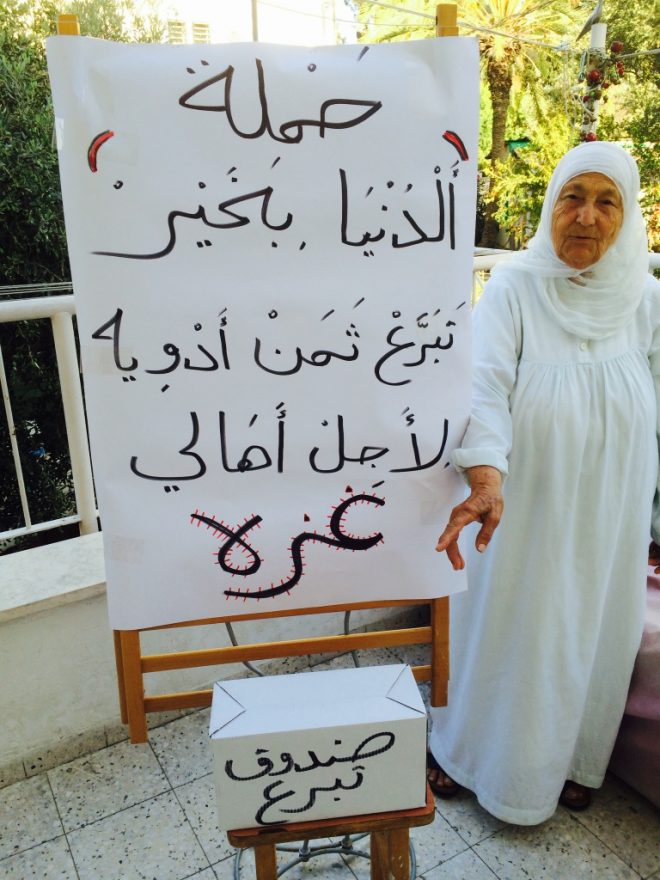 حَمْلة
(أَلْدُنْيَا بِخَيْرْ)
تَبَرَّعْ ثَمَنْ أَدْوِيه
لِأَجِلْ أَهَالي
غزه
صندوق
تبرع